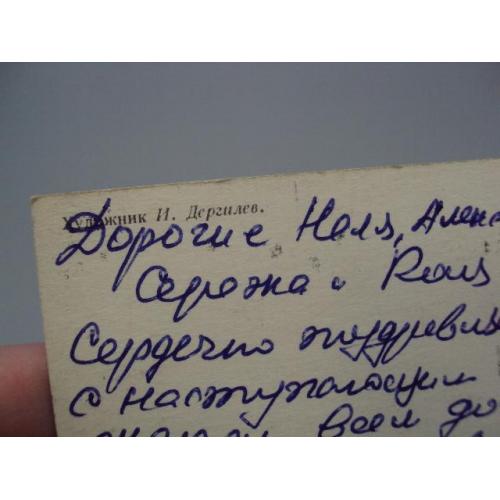 Художник И. Дергилев.
Дорогие Неля, Алекс
Сережа и
Сердечно поздравля
с наступающим
всем до